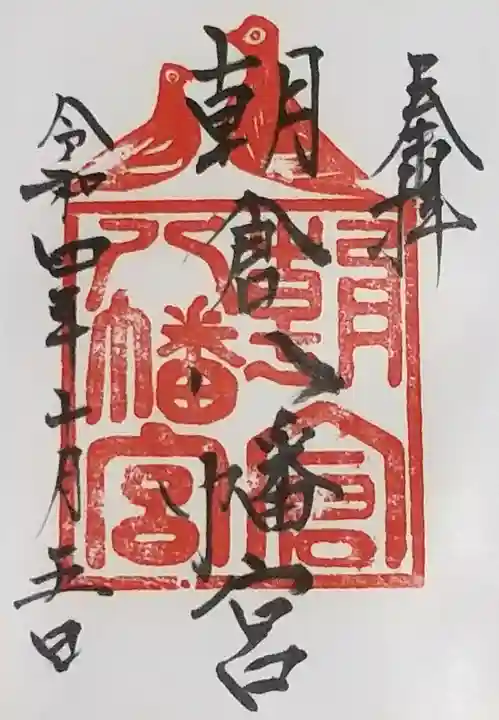 奉拝
朝倉八幡宮
令和四年十一月五日
朝倉
八幡宮